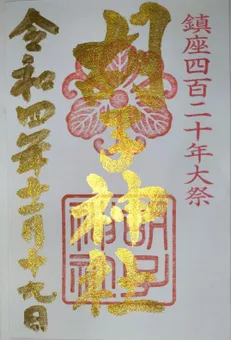 鎮座四百二十年大祭
胡子神社
胡子
神社
令和四年十一月十九日